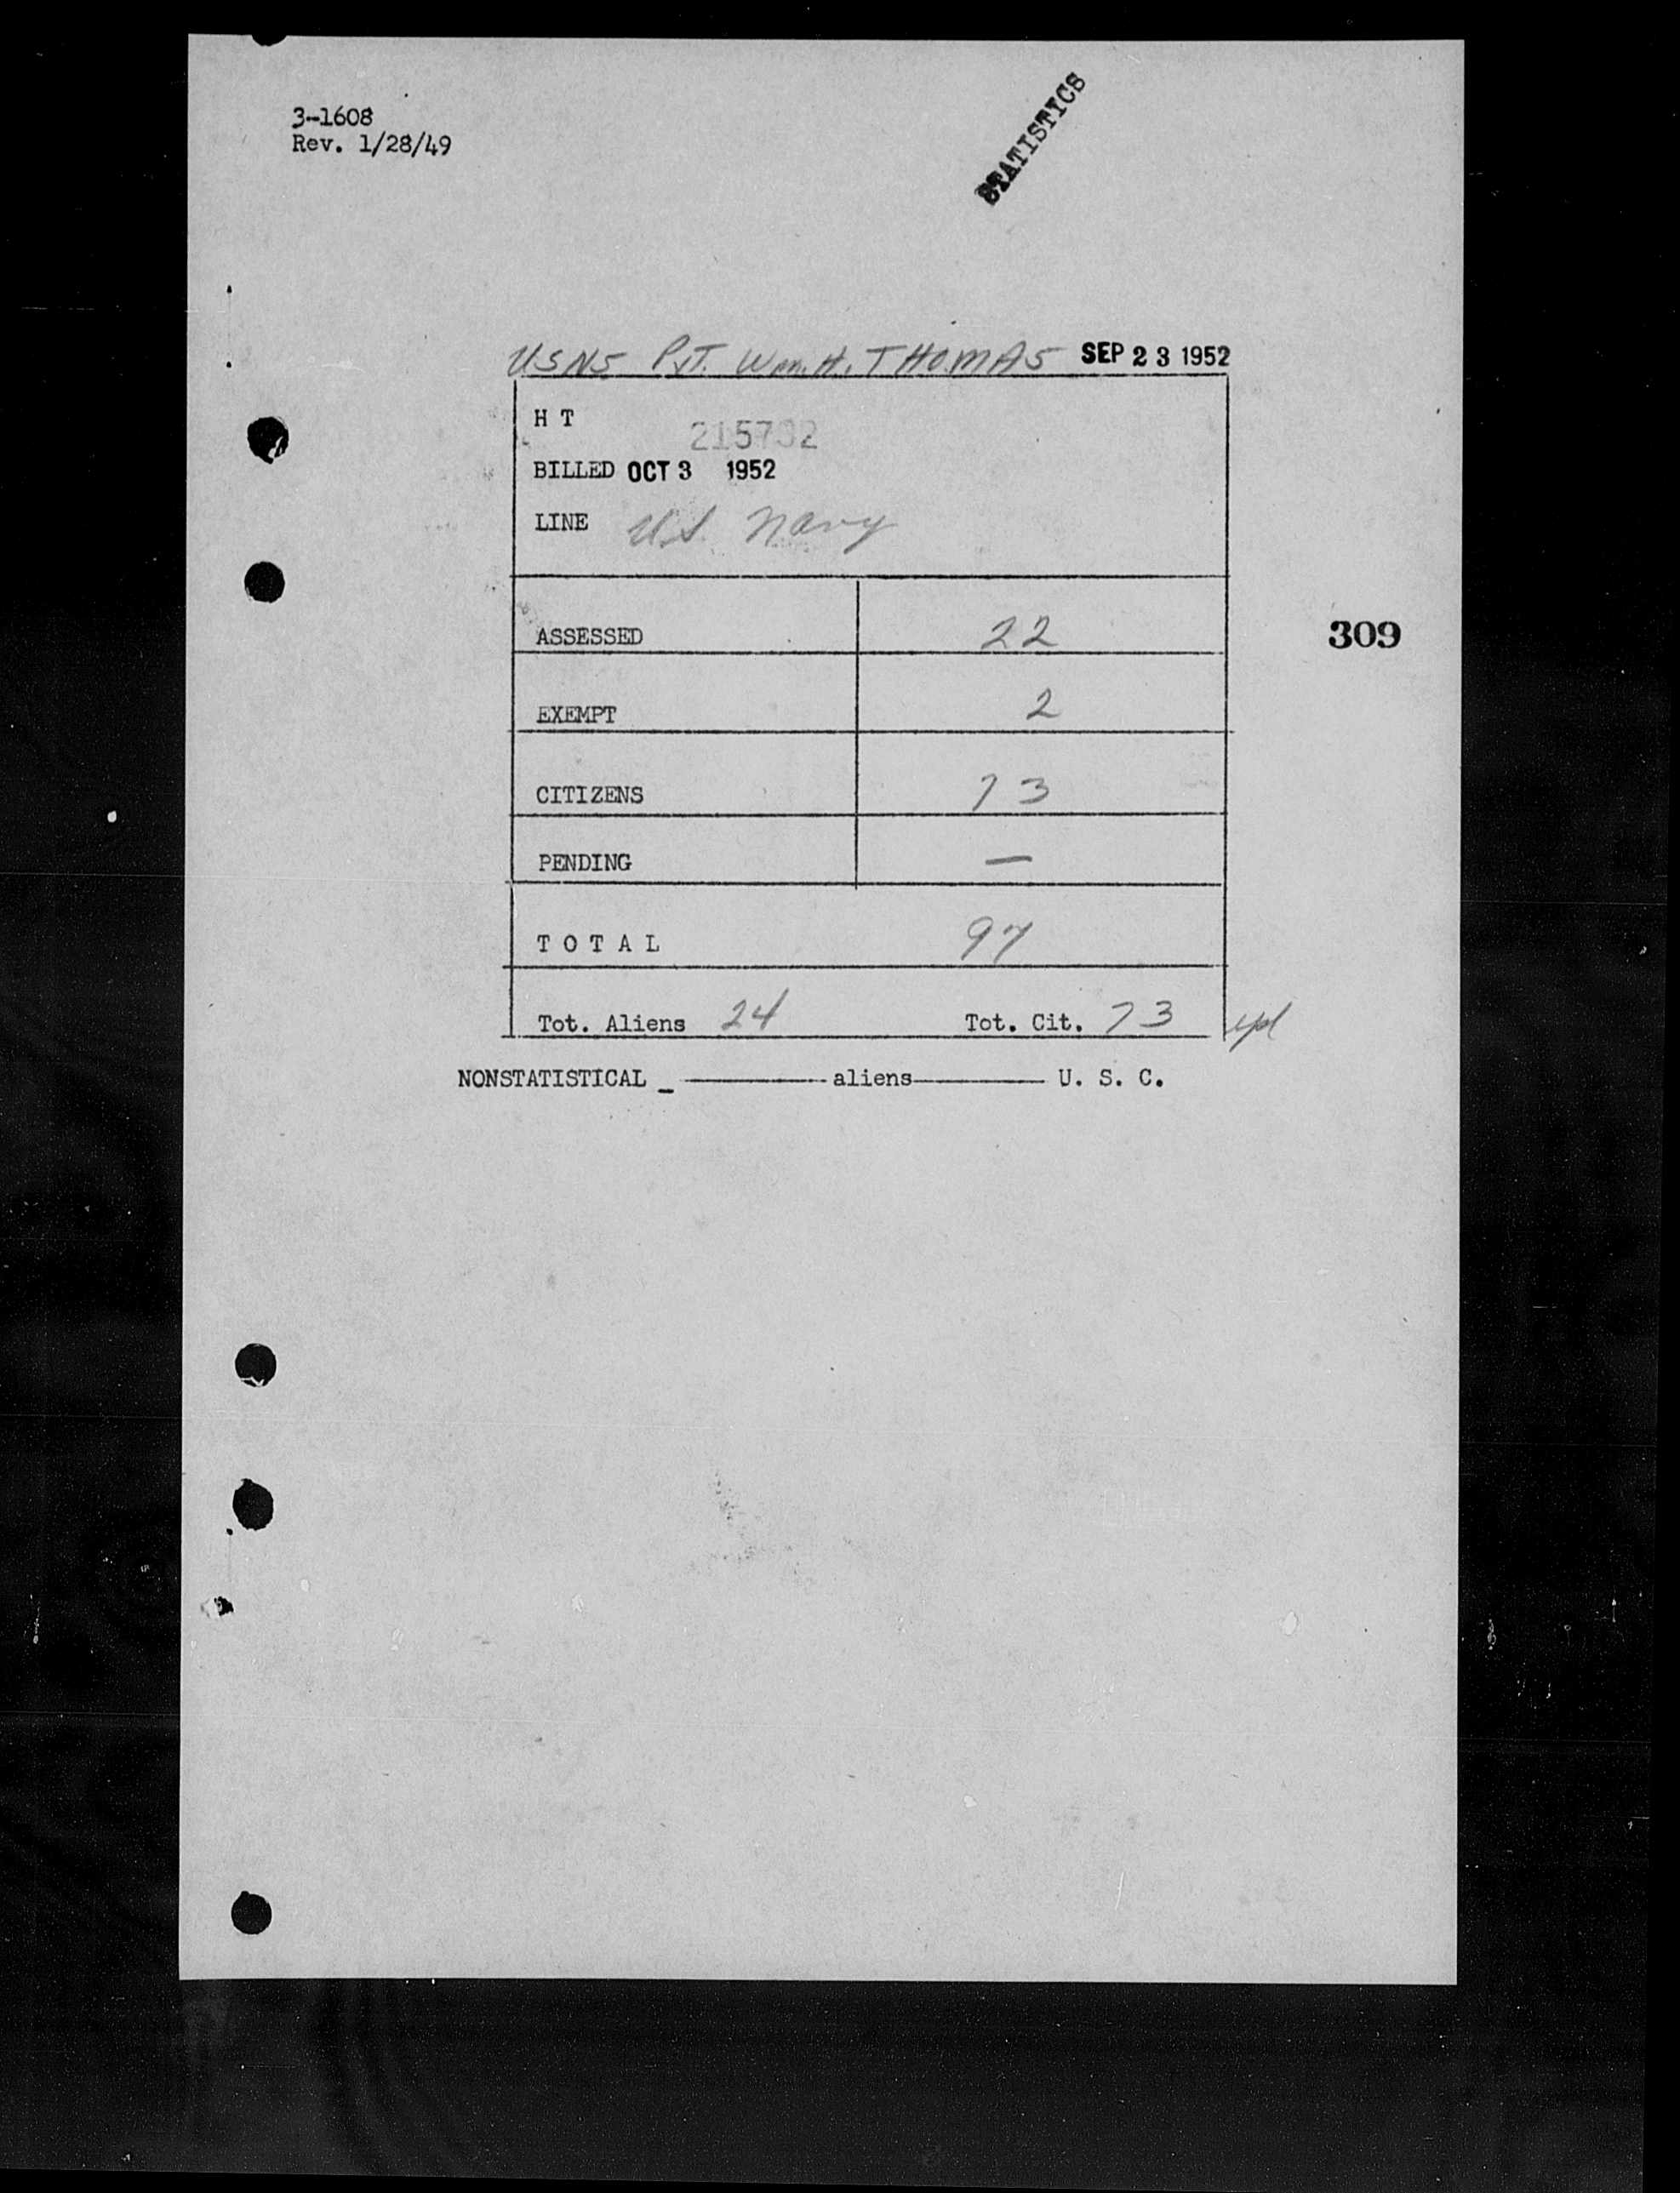 3-1608
Rev. 1/28/49
STATISTICS
USNS Pvt. Wm. H. THOMAS SEP 23 1952
H T
BILLED OCT 3 1952
LINE U.S. Navy
ASSESSED 22
309
EXEMPT 2
CITIZENS 73
PENDING —
TOTAL 97
Tot. Aliens 24 Tot. Cit. 73
NONSTATISTICAL _ ———— aliens ———— U. S. C.